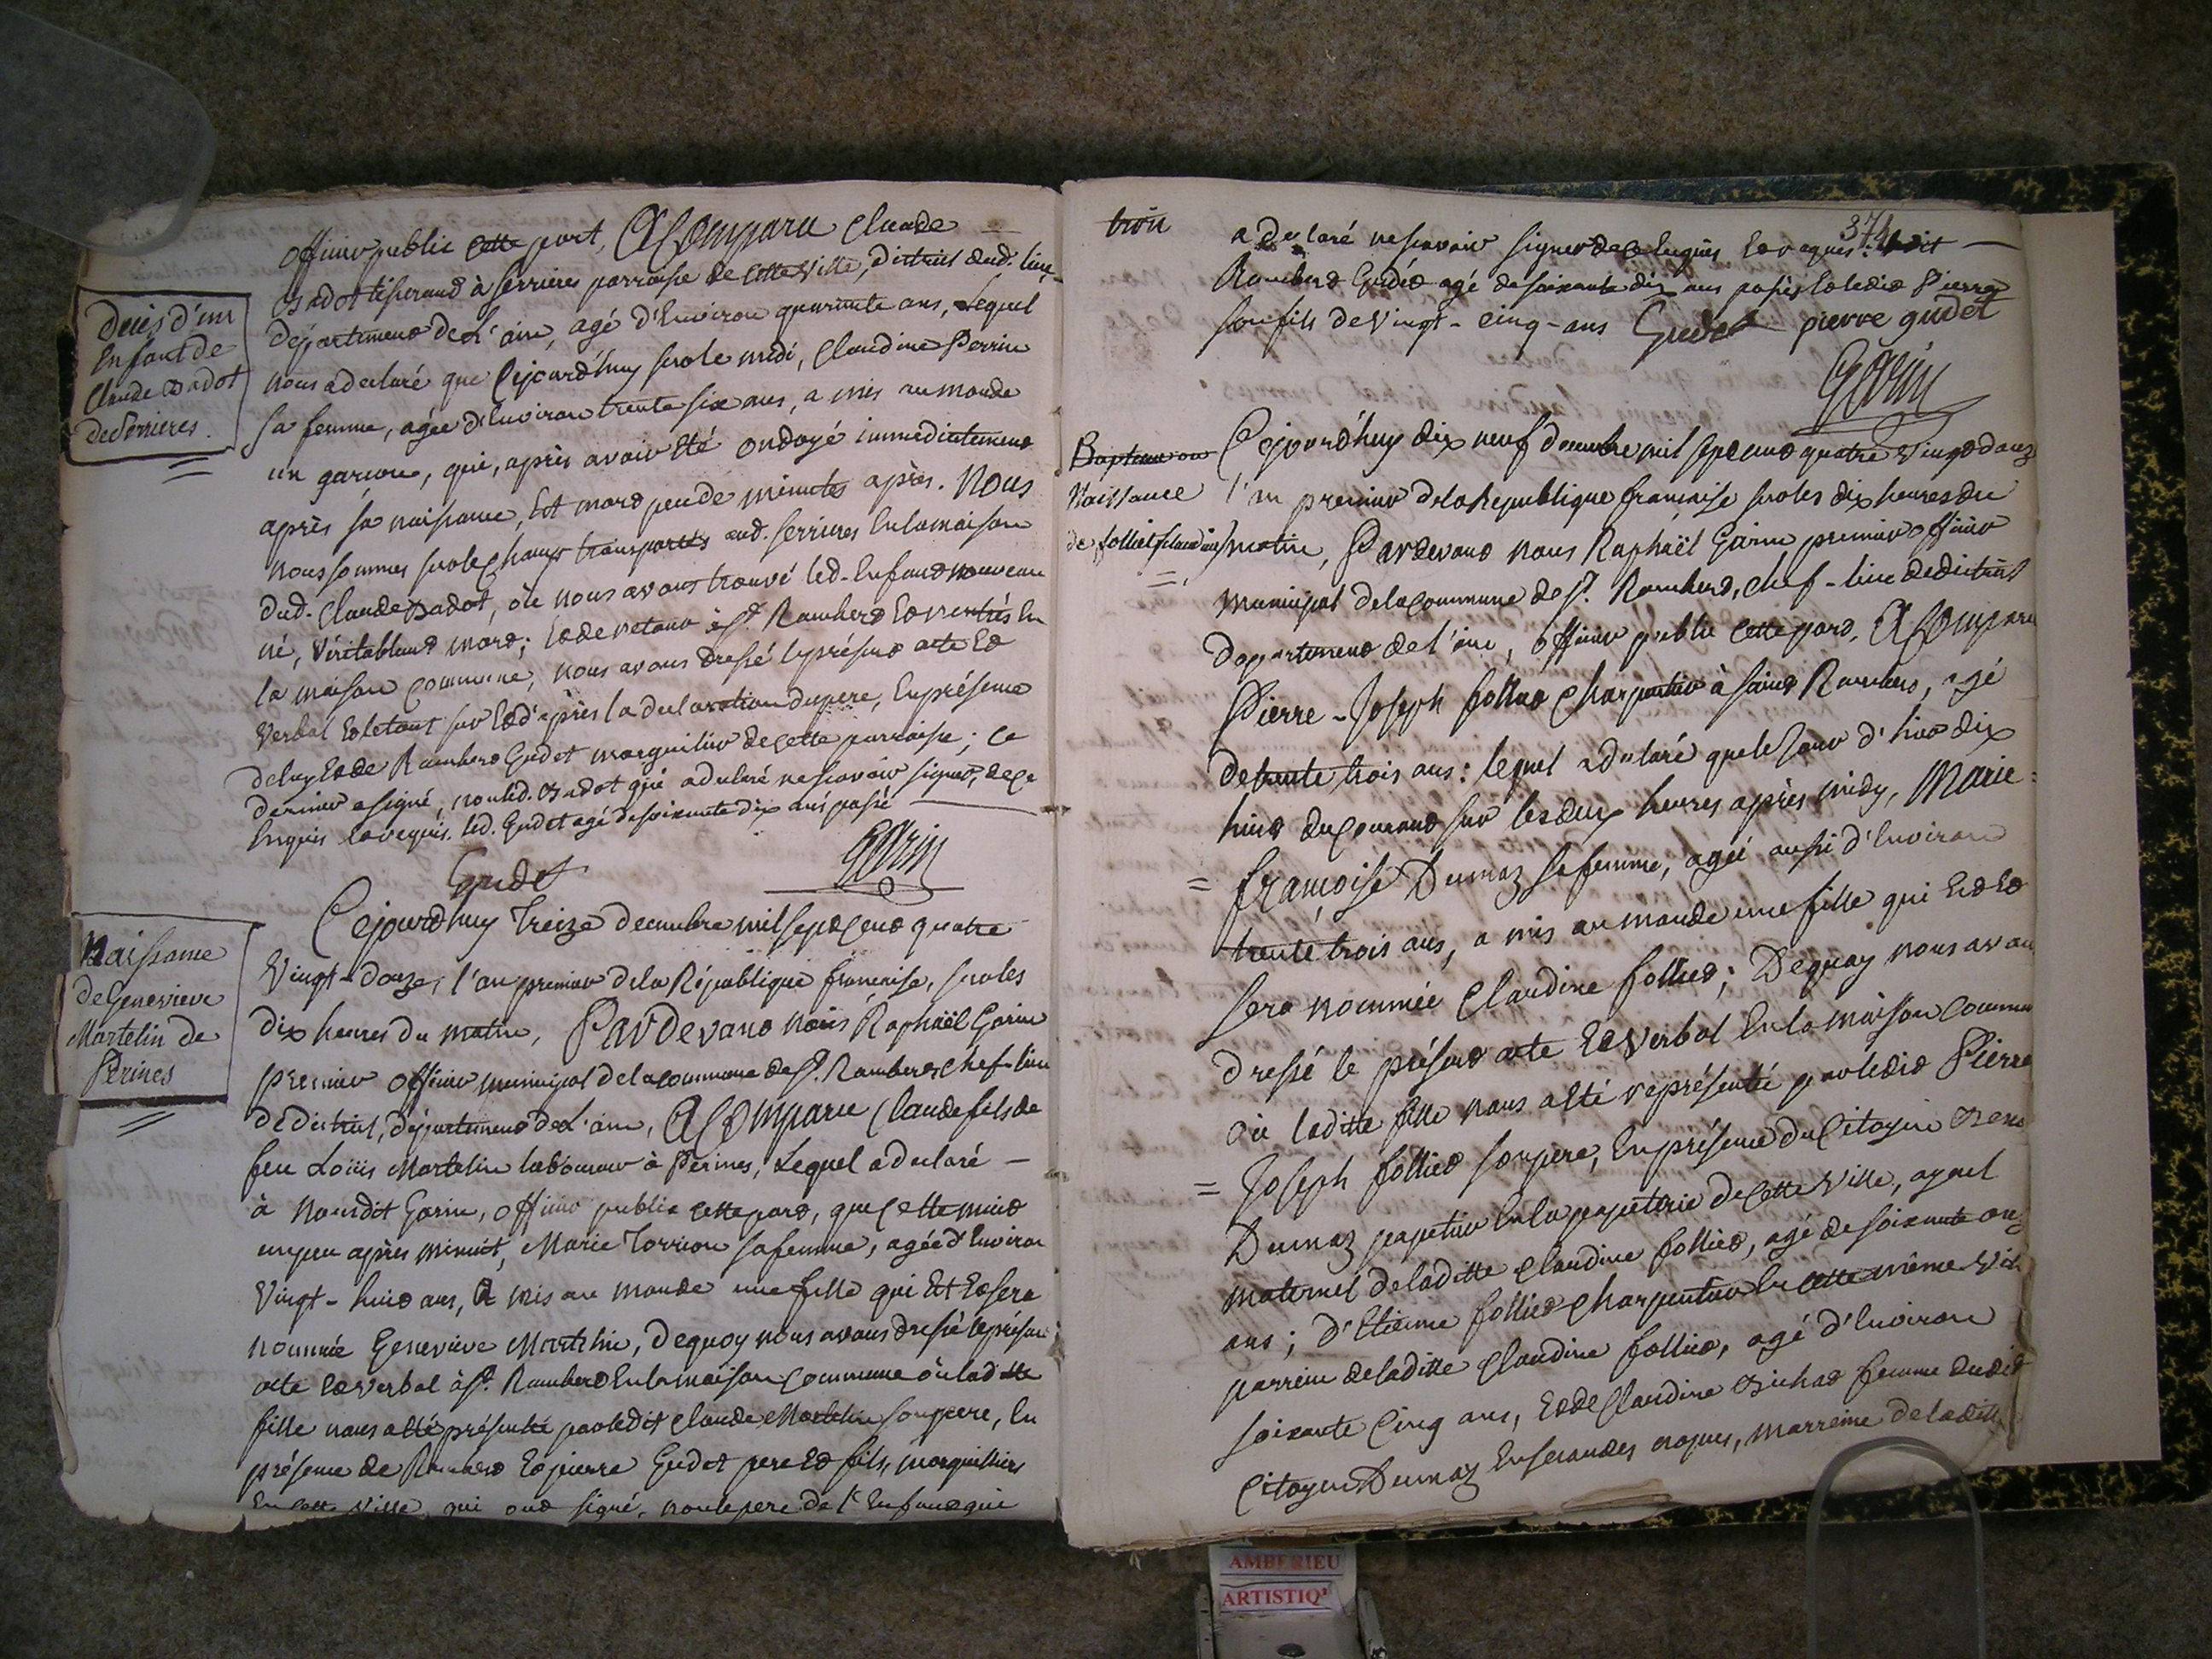 officier public cette part, A Comparu Claude
Badot tisserand à Serrieres parroisse de cette ville, district dud. lieu,
département de L'ain, agé d'Environ quarante ans, Lequel
nous a declaré que Cejourd'huy sur le midi, Claudine Perrin
sa femme, agée d'Environ trente six ans, a mis au monde
un garcon, qui, après avoir Eté ondoyé immediatement
après sa naissance, Est mort peu de minutes après. Nous
nous sommes sur le champ transportés aud. Serrieres En la maison
dud. Claude Badot, où nous avons trouvé led. Enfant nouveau
né, véritablemt mort; Et de retour à St. Rambert Et rentrés En
la maison Commune, nous avons dressé le présent acte Et
verbal Et le tout sur Et d'après la declaration du pere, En présence
de luy Et de Rambert Gudet marguillier de cette parroisse; Ce
dernier a signé, non led. Badot qui a declaré ne scavoir signer, de ce
Enquis Et requis. led. Gudet agé de soixante dix ans passé
Gudet
Garin
Décès d'un
Enfant de
Claude Badot
de Serrieres.
Cejourd'huy Treize decembre mil sept Cent quatre
Vingt-douze, l'an premier de la République francaise, sur les
dix heures du matin, Pardevant nous Raphaël Garin
premier officier municipal de la commune de St. Rambert chef-lieu
de district, département de L'ain, A Comparu Claude fils de
feu Loüis Martelin laboureur à Perines, Lequel a declaré
à Nousdit Garin, officier public cette part, que cette nuit
un peu après minuit, Marie Torrion sa femme, agée d'Environ
Vingt-huit ans, A mis au monde une fille qui Est Et sera
nommée Genevieve Martelin, De quoy nous avons dressé le présent
acte Et verbal à St. Rambert En la maison Commune où laditte
fille nous a Eté présenté par ledit Claude Martelin son pere, En
présence de Rambert Et pierre Gudet pere Et fils, marguilliers
En cette Ville, qui ont signé, non le pere de l'Enfant qui
Naissance
De Genevieve
Martelin de
Perines
374
trois
a declaré ne scavoir signer de ce Enquis Et requis: ledit
Rambert Gudet agé de soixante dix ans passés Et ledit Pierre
son fils de Vingt-cinq-ans Gudet pierre gudet
Garin
Bapteme ou
Naissance
de folliet Claudine
Cejourd'huy dix neuf decembre mil sept cent quatre Vingt douze
l'an premier de la Republique francaise sur les dix heures du
matin, Pardevant nous Raphaël Garin premier officier
municipal de la Commune de St. Rambert, chef-lieu de district
département de l'ain, officier public cette part, A Comparu
Pierre-Joseph folliet Charpentier à saint Rambert, agé
de trente trois ans: lequel a declaré que le Jour d'hier dix
huit du Courant sur les deux heures après midy, Marie
françoise Dumaz sa femme, agée aussi d'Environ
trente trois ans, a mis au monde une fille qui Est Et
sera nommée Claudine folliet; De quoy nous avons
dressé le présent acte Et verbal En la maison Commune
où laditte fille nous a Eté représentée par ledit Pierre
Joseph folliet son pere, En présence du Citoyen
Dumaz papetier En la papeterie de Cette Ville, ayeul
maternel de laditte Claudine folliet, agé de soixante onze
ans; d'Etienne folliet Charpentier En cette même Ville
parrein de laditte Claudine folliet, agé d'Environ
soixante Cinq ans, Et de Claudine Bichat femme dudit
Citoyen Dumaz En secondes noces, marreine de laditte
AMBERIEU
ARTISTIQ'